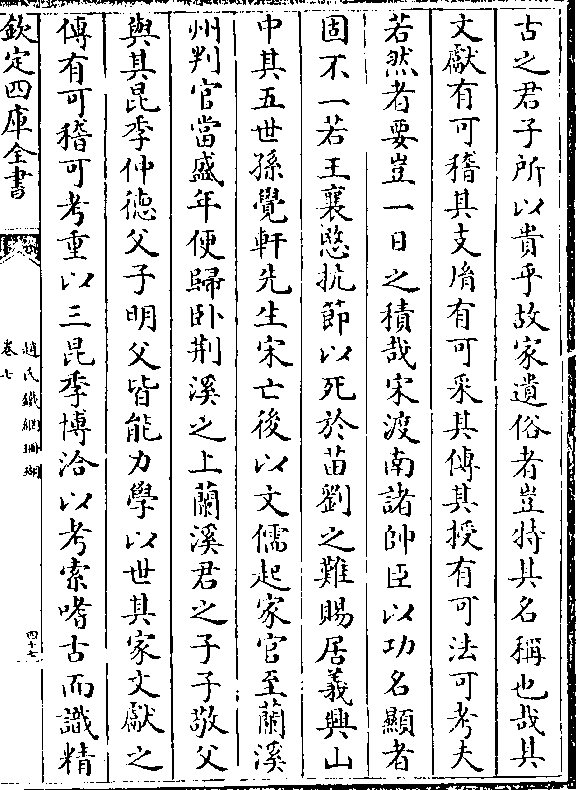 古之君子所以貴乎故家遺俗者豈特其名稱也哉其
文獻有可稽其支脩有可采其傳其授有可法可考夫
若然者要豈一日之積哉宋渡南諸帥臣以功名顯者
固不一若王襄愍抗節以死於苗劉之難賜居義興山
中其五世孫覺軒先生宋亡後以文儒起家官至蘭溪
州判官當盛年便歸卧荆溪之上蘭溪君之子子敬父
與其昆季仲德父子明父皆能力學以世其家文獻之
傳有可稽可考重以三昆季博洽以考索嗜古而識精
欽定四庫全書
趙氏鐵網珊瑚
卷七
四十七